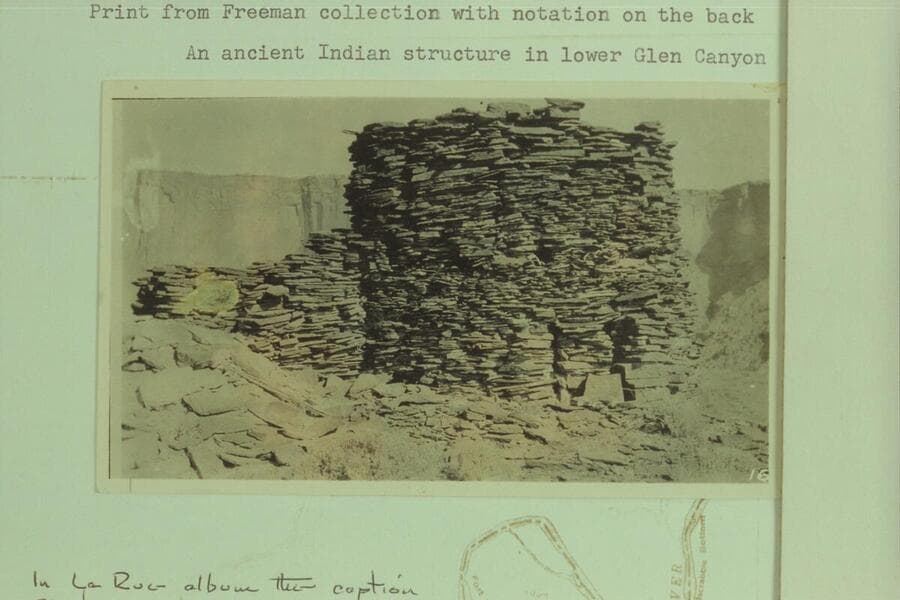 Print from Freeman collection with notation on the back
An ancient Indian structure in lower Glen Canyon
16
In La Rue album the caption